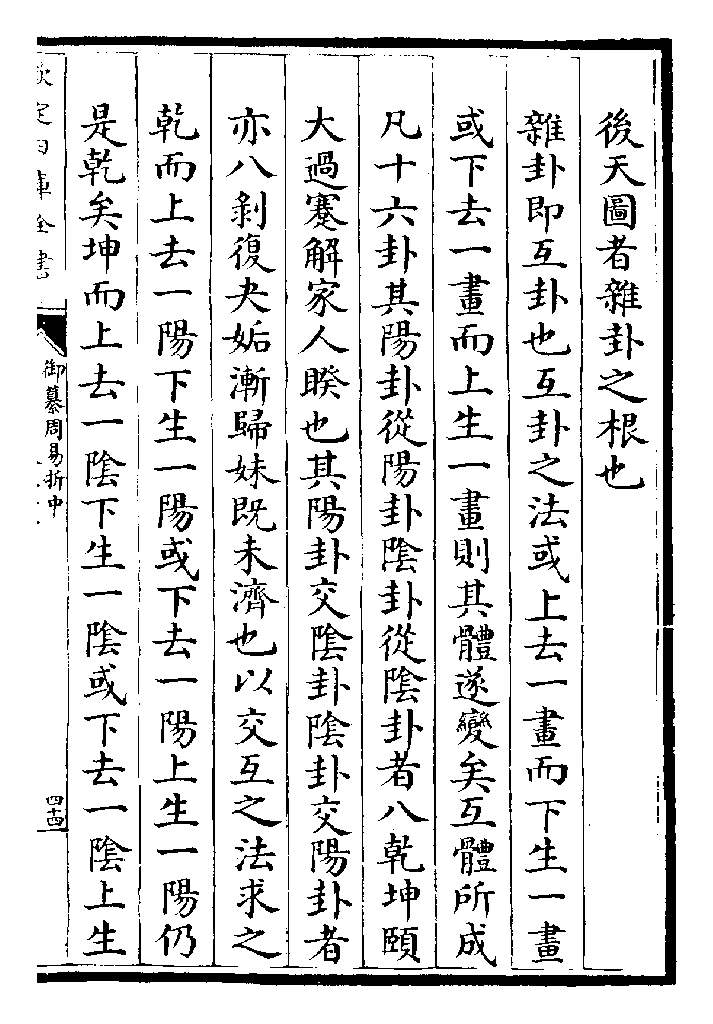 後天圖者雜卦之根也
雜卦即互卦也互卦之法或上去一畫而下生一畫
或下去一畫而上生一畫則其體遂變矣互體所成
凡十六卦其陽卦從陽卦陰卦從陰卦者八乾坤頤
大過蹇解家人睽也其陽卦交陰卦陰卦交陽卦者
亦八剝復夬姤漸歸妹既未濟也以交互之法求之
乾而上去一陽下生一陽或下去一陽上生一陽仍
是乾矣坤而上去一陰下生一陰或下去一陰上生
欽定四庫全書
御纂周易折中
四十四